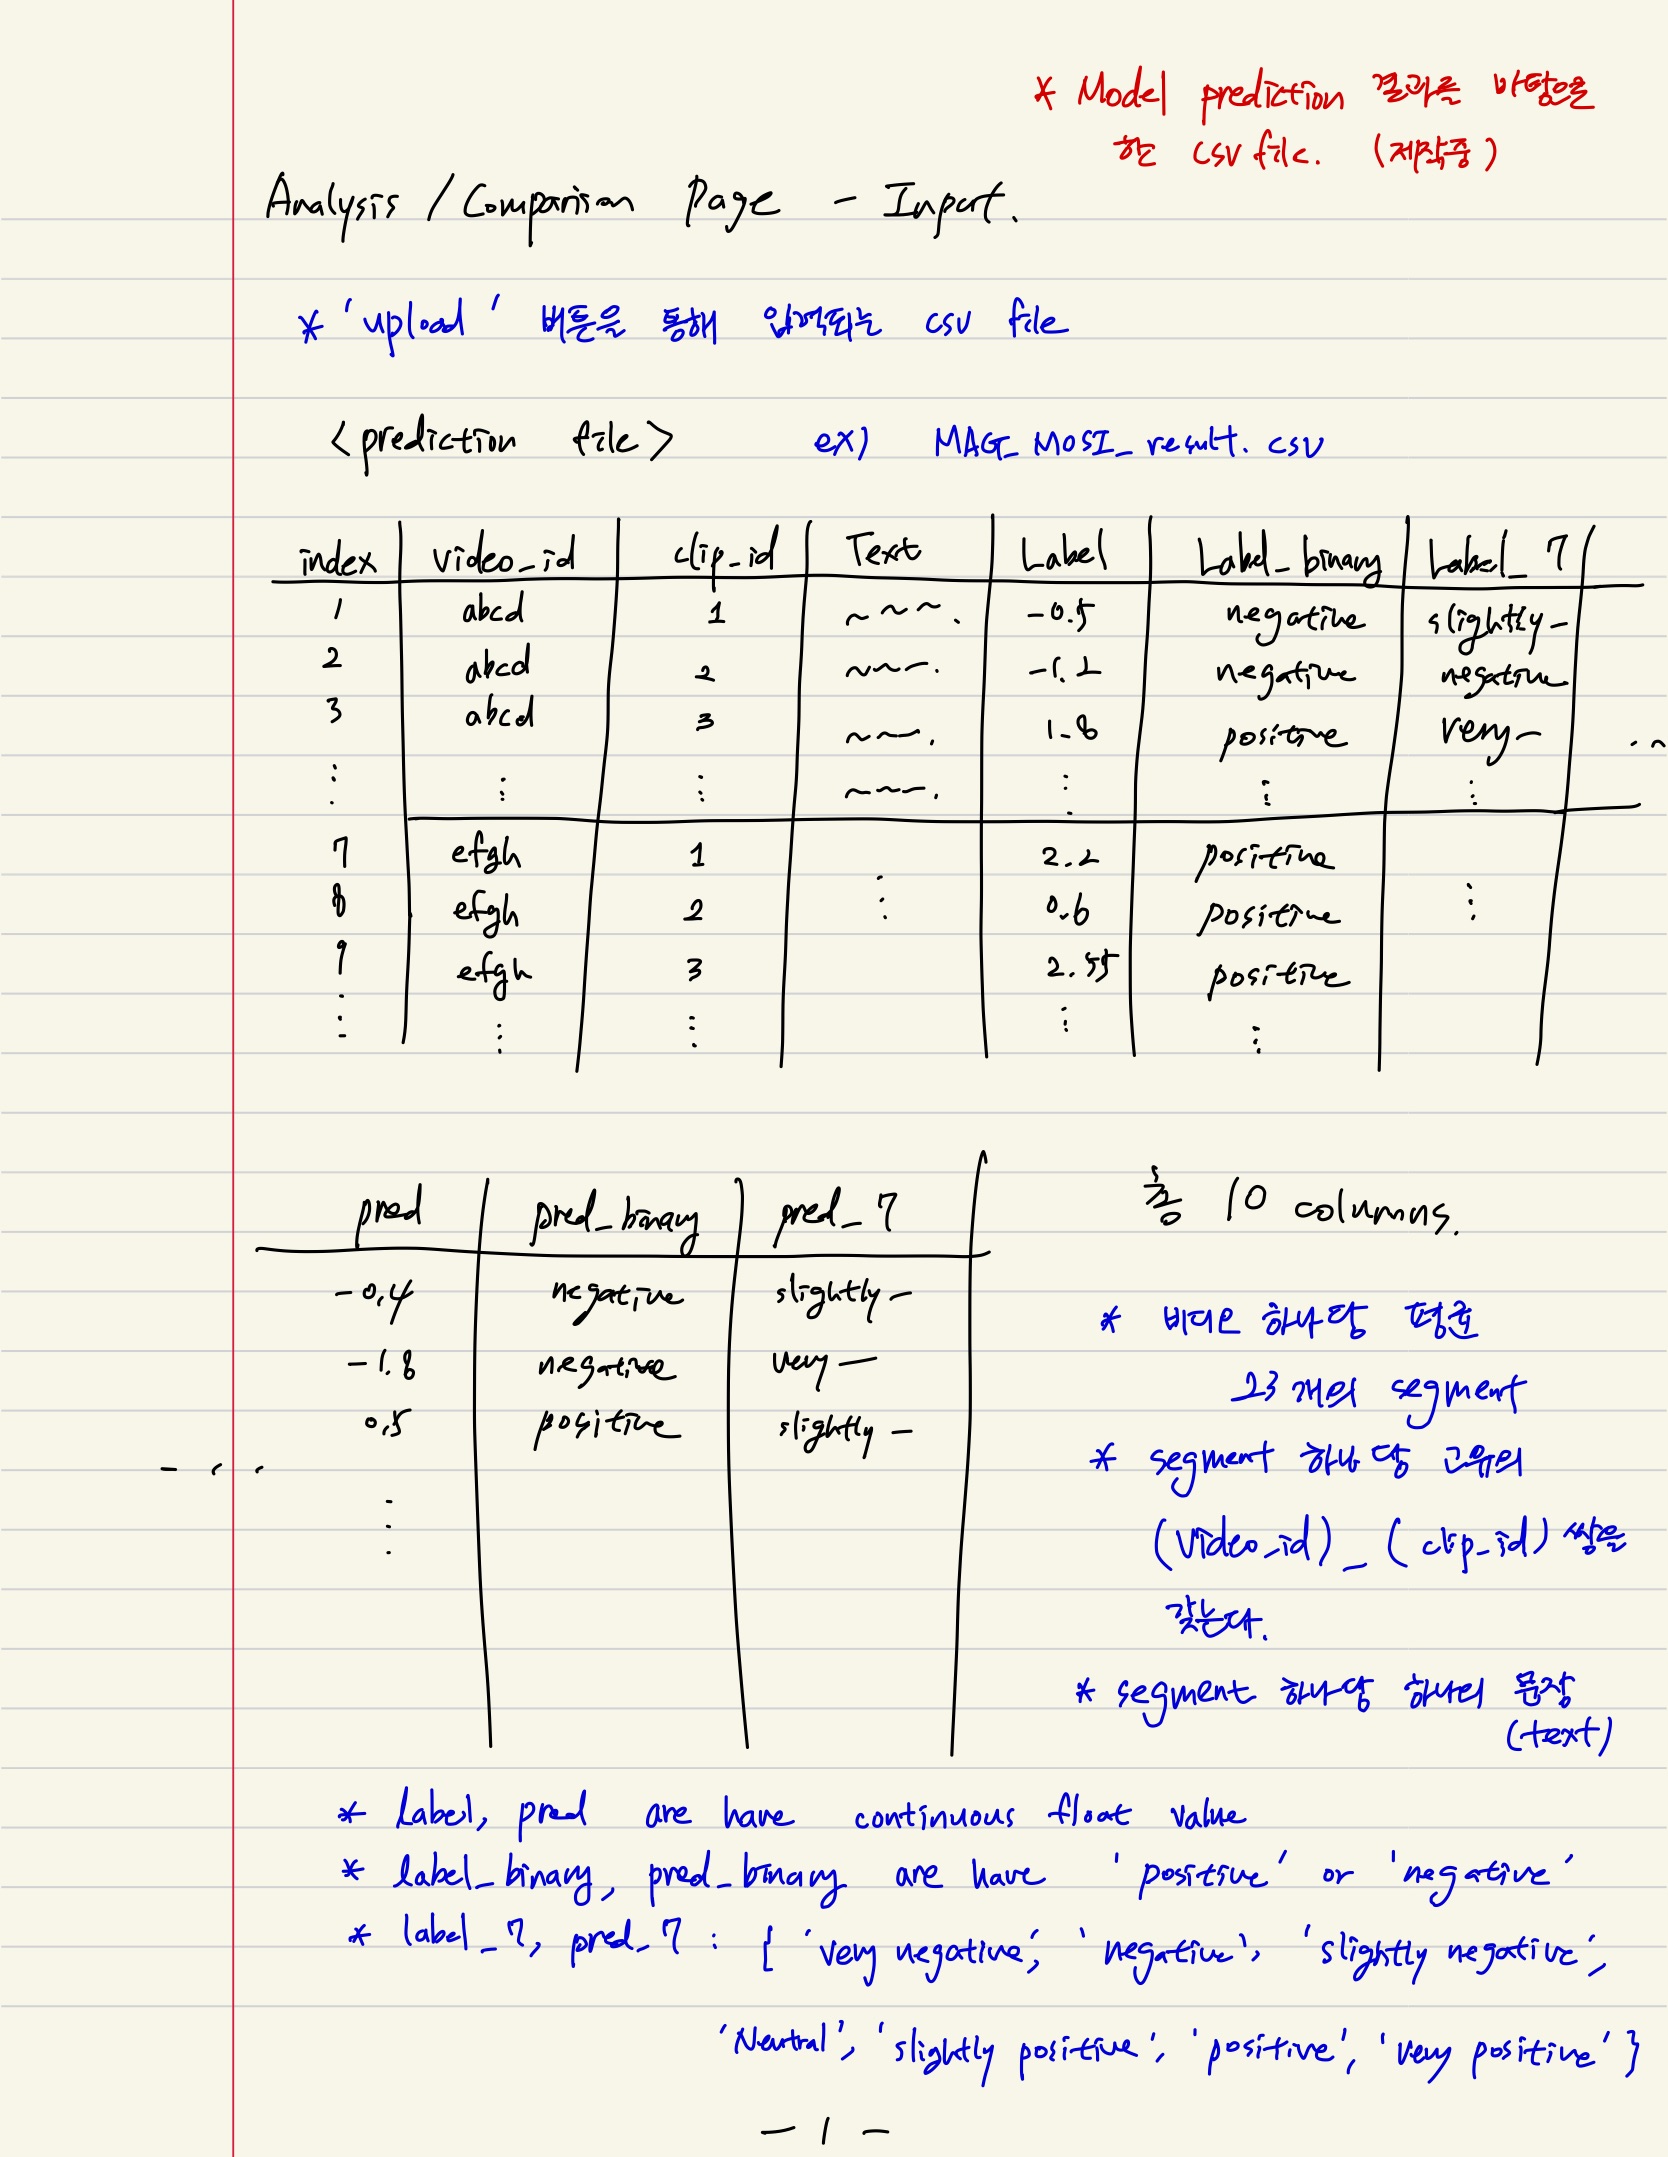 * Model prediction 결과를 바탕으로
한 csv file. (제작중)
Analysis / Comparison Page - Input.
* 'upload' 버튼을 통해 입력되는 csv file
<prediction file> ex) MAG_MOSI_result.csv
index video_id clip_id Text Label Label_binary Label_7
1 abcd 1 ~~~. -0.5 negative slightly-
2 abcd 2 ~~~. -1.2 negative negative
3 abcd 3 ~~~. 1.8 positive very- ...
⋮ ⋮ ⋮ ~~~. ⋮ ⋮ ⋮
7 efgh 1 ⋮ 2.2 positive ⋮
8 efgh 2 0.6 positive
9 efgh 3 2.55 positive
⋮ ⋮ ⋮ ⋮ ⋮
pred pred_binary pred_7
-0.4 negative slightly-
-1.8 negative very-
0.5 positive slightly-
...
⋮
총 10 columns.
* 비디오 하나당 평균
23개의 segment
* segment 하나당 고유의
(video_id)_(clip_id) 쌍을
갖는다.
* segment 하나당 하나의 문장
(text)
* Label, pred are have continuous float value
* label_binary, pred_binary are have 'positive' or 'negative'
* label_7, pred_7 : { 'very negative', 'negative', 'slightly negative',
'Neutral', 'slightly positive', 'positive', 'very positive' }
- 1 -